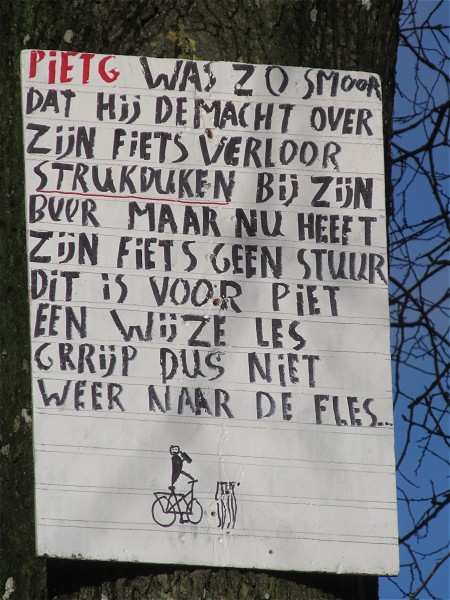 PiETG WAS ZO SMOOR
DAT HIJ DE MACHT OVER
ZIJN FiETS VERLOOR
STRUKDUKEN BIJ ZIJN
BUUR MAAR NU HEEFT
ZIJN FIETS GEEN STUUR
DIT iS VOOR PiET
EEN WIJZE LES
GRRIJP DUS NIET
WEER NAAR DE FLES...